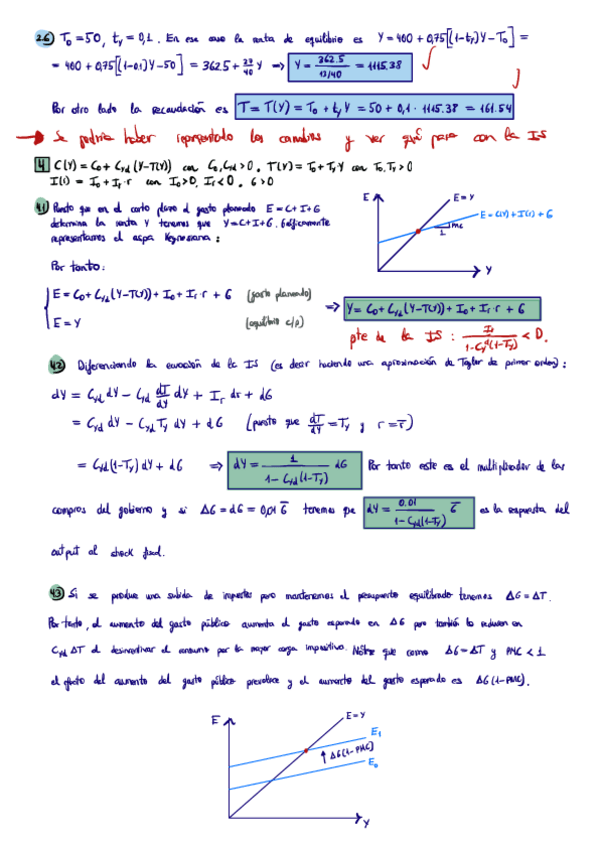 2.6) T₀=50, t_y=0,1. En ese caso la renta de equilibrio es Y=400+0,75[(1-t_y)Y-T₀]=
= 400+0,75[(1-0.1)Y-50] = 362.5 + 27/40 Y ⇒ Y = 362.5 / 13/40 = 1115.38
Por otro lado la recaudación es T=T(Y)=T₀+t_y Y=50+0,1·1115.38=161.54
→ Se podría haber representado los cambios y ver qué pasa con la IS
4. C(Y)=C₀+C_yd(Y-T(Y)) con C₀,C_yd>0. T(Y)=T₀+T_y Y con T₀,T_y>0
I(r)=I₀+I_r·r con I₀>0, I_r<0. G>0
4.1) Puesto que en el corto plazo el gasto planeado E=C+I+G
determina la renta Y tenemos que Y=C+I+G. Gráficamente
representamos el aspa Keynesiana:
E
E=Y
E=C(Y)+I(r)+G
mc
1
Y
Por tanto:
E=C₀+C_yd(Y-T(Y))+I₀+I_r·r+G (gasto planeado)
E=Y (equilibrio c/p)
⇒ Y=C₀+C_yd(Y-T(Y))+I₀+I_r·r+G
pte de la IS: I_r / 1-C_yd(1-T_y) < 0.
4.2) Diferenciando la ecuación de la IS (es decir haciendo una aproximación de Taylor de primer orden):
dY = C_yd dY - C_yd dT/dY dY + I_r dr + dG
= C_yd dY - C_yd T_y dY + dG (puesto que dT/dY = T_y y r=r̄)
= C_yd(1-T_y)dY + dG ⇒ dY = 1 / 1-C_yd(1-T_y) dG Por tanto este es el multiplicador de las
compras del gobierno y si ΔG=dG=0,01 G̅ tenemos que dY = 0.01 / 1-C_yd(1-T_y) G̅ es la respuesta del
output al shock fiscal.
4.3) Si se produce una subida de impuestos pero mantenemos el presupuesto equilibrado tenemos ΔG=ΔT.
Por tanto, el aumento del gasto público aumenta el gasto esperado en ΔG pero también lo reducen en
C_yd ΔT al desincentivar el consumo por la mayor carga impositiva. Nótese que como ΔG=ΔT y PMC<1
el efecto del aumento del gasto público prevalece y el aumento del gasto esperado es ΔG(1-PMC).
E
E=Y
E₁
ΔG(1-PMC)
E₀
Y